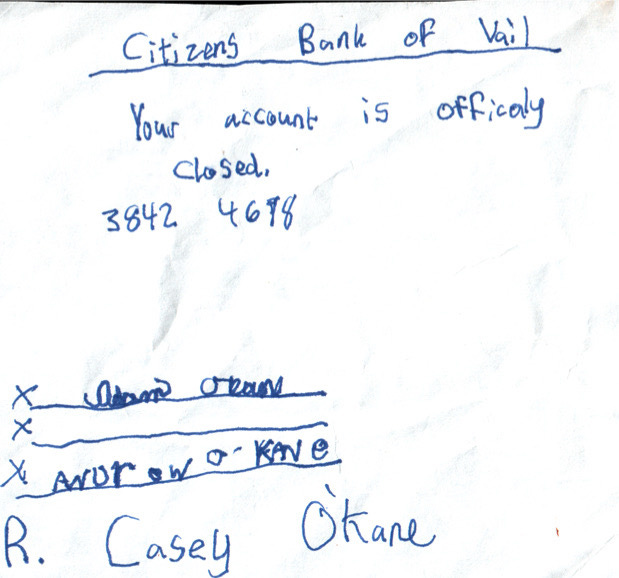 Citizens Bank of Vail
Your account is officaly
closed.
3842 4698
X Adam Okane
X
X ANDrew O-KANe
R. Casey O'Kane